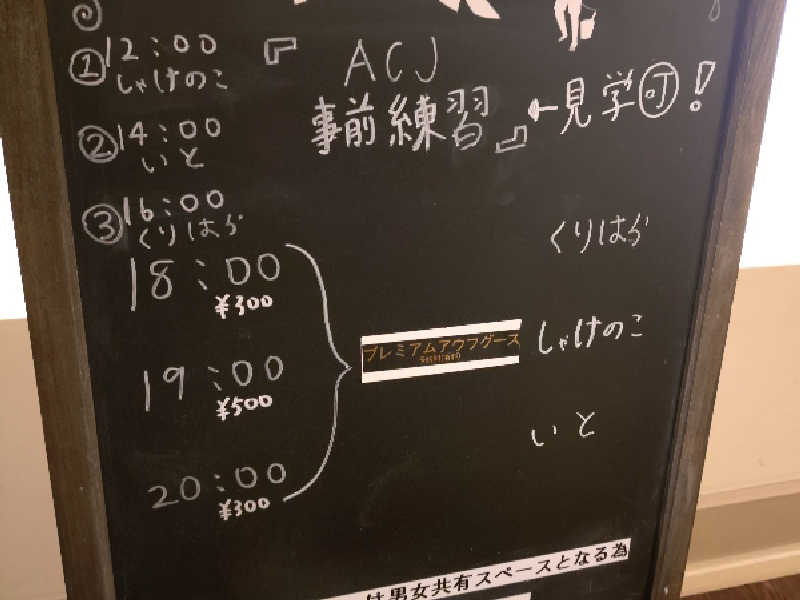 ①12:00
しゃけのこ
『 ACJ
事前練習』←見学可!
②14:00
いと
③16:00
くりはら
18:00
¥300
くりはら
プレミアムアウフグース
19:00
¥500
しゃけのこ
20:00
¥300
いと
は男女共有スペースとなる為